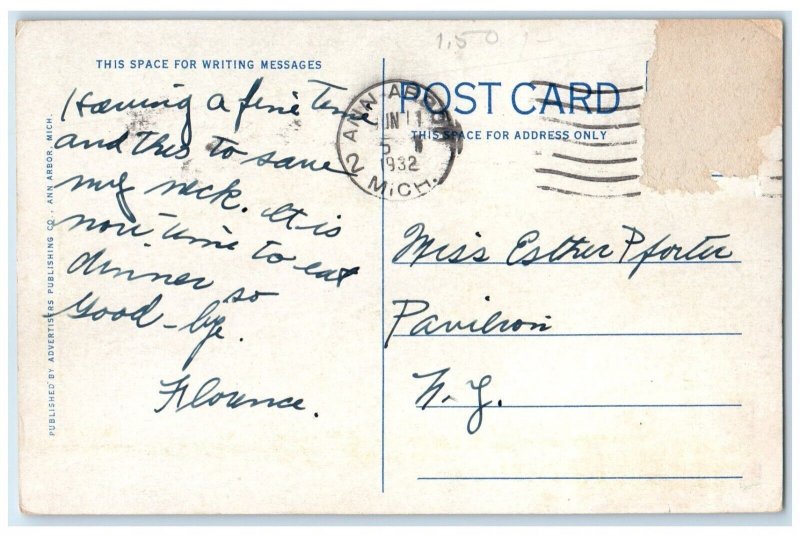 1.50
THIS SPACE FOR WRITING MESSAGES
POST CARD
THIS SPACE FOR ADDRESS ONLY
ANN ARBOR
JUN 11
5
1932
2 MICH.
Having a fine time
and this to save
my neck. It is
now time to eat
dinner so
good-bye.
Florence.
Miss Esther Pforter
Pavilion
N.Y.
PUBLISHED BY ADVERTISERS PUBLISHING CO., ANN ARBOR, MICH.